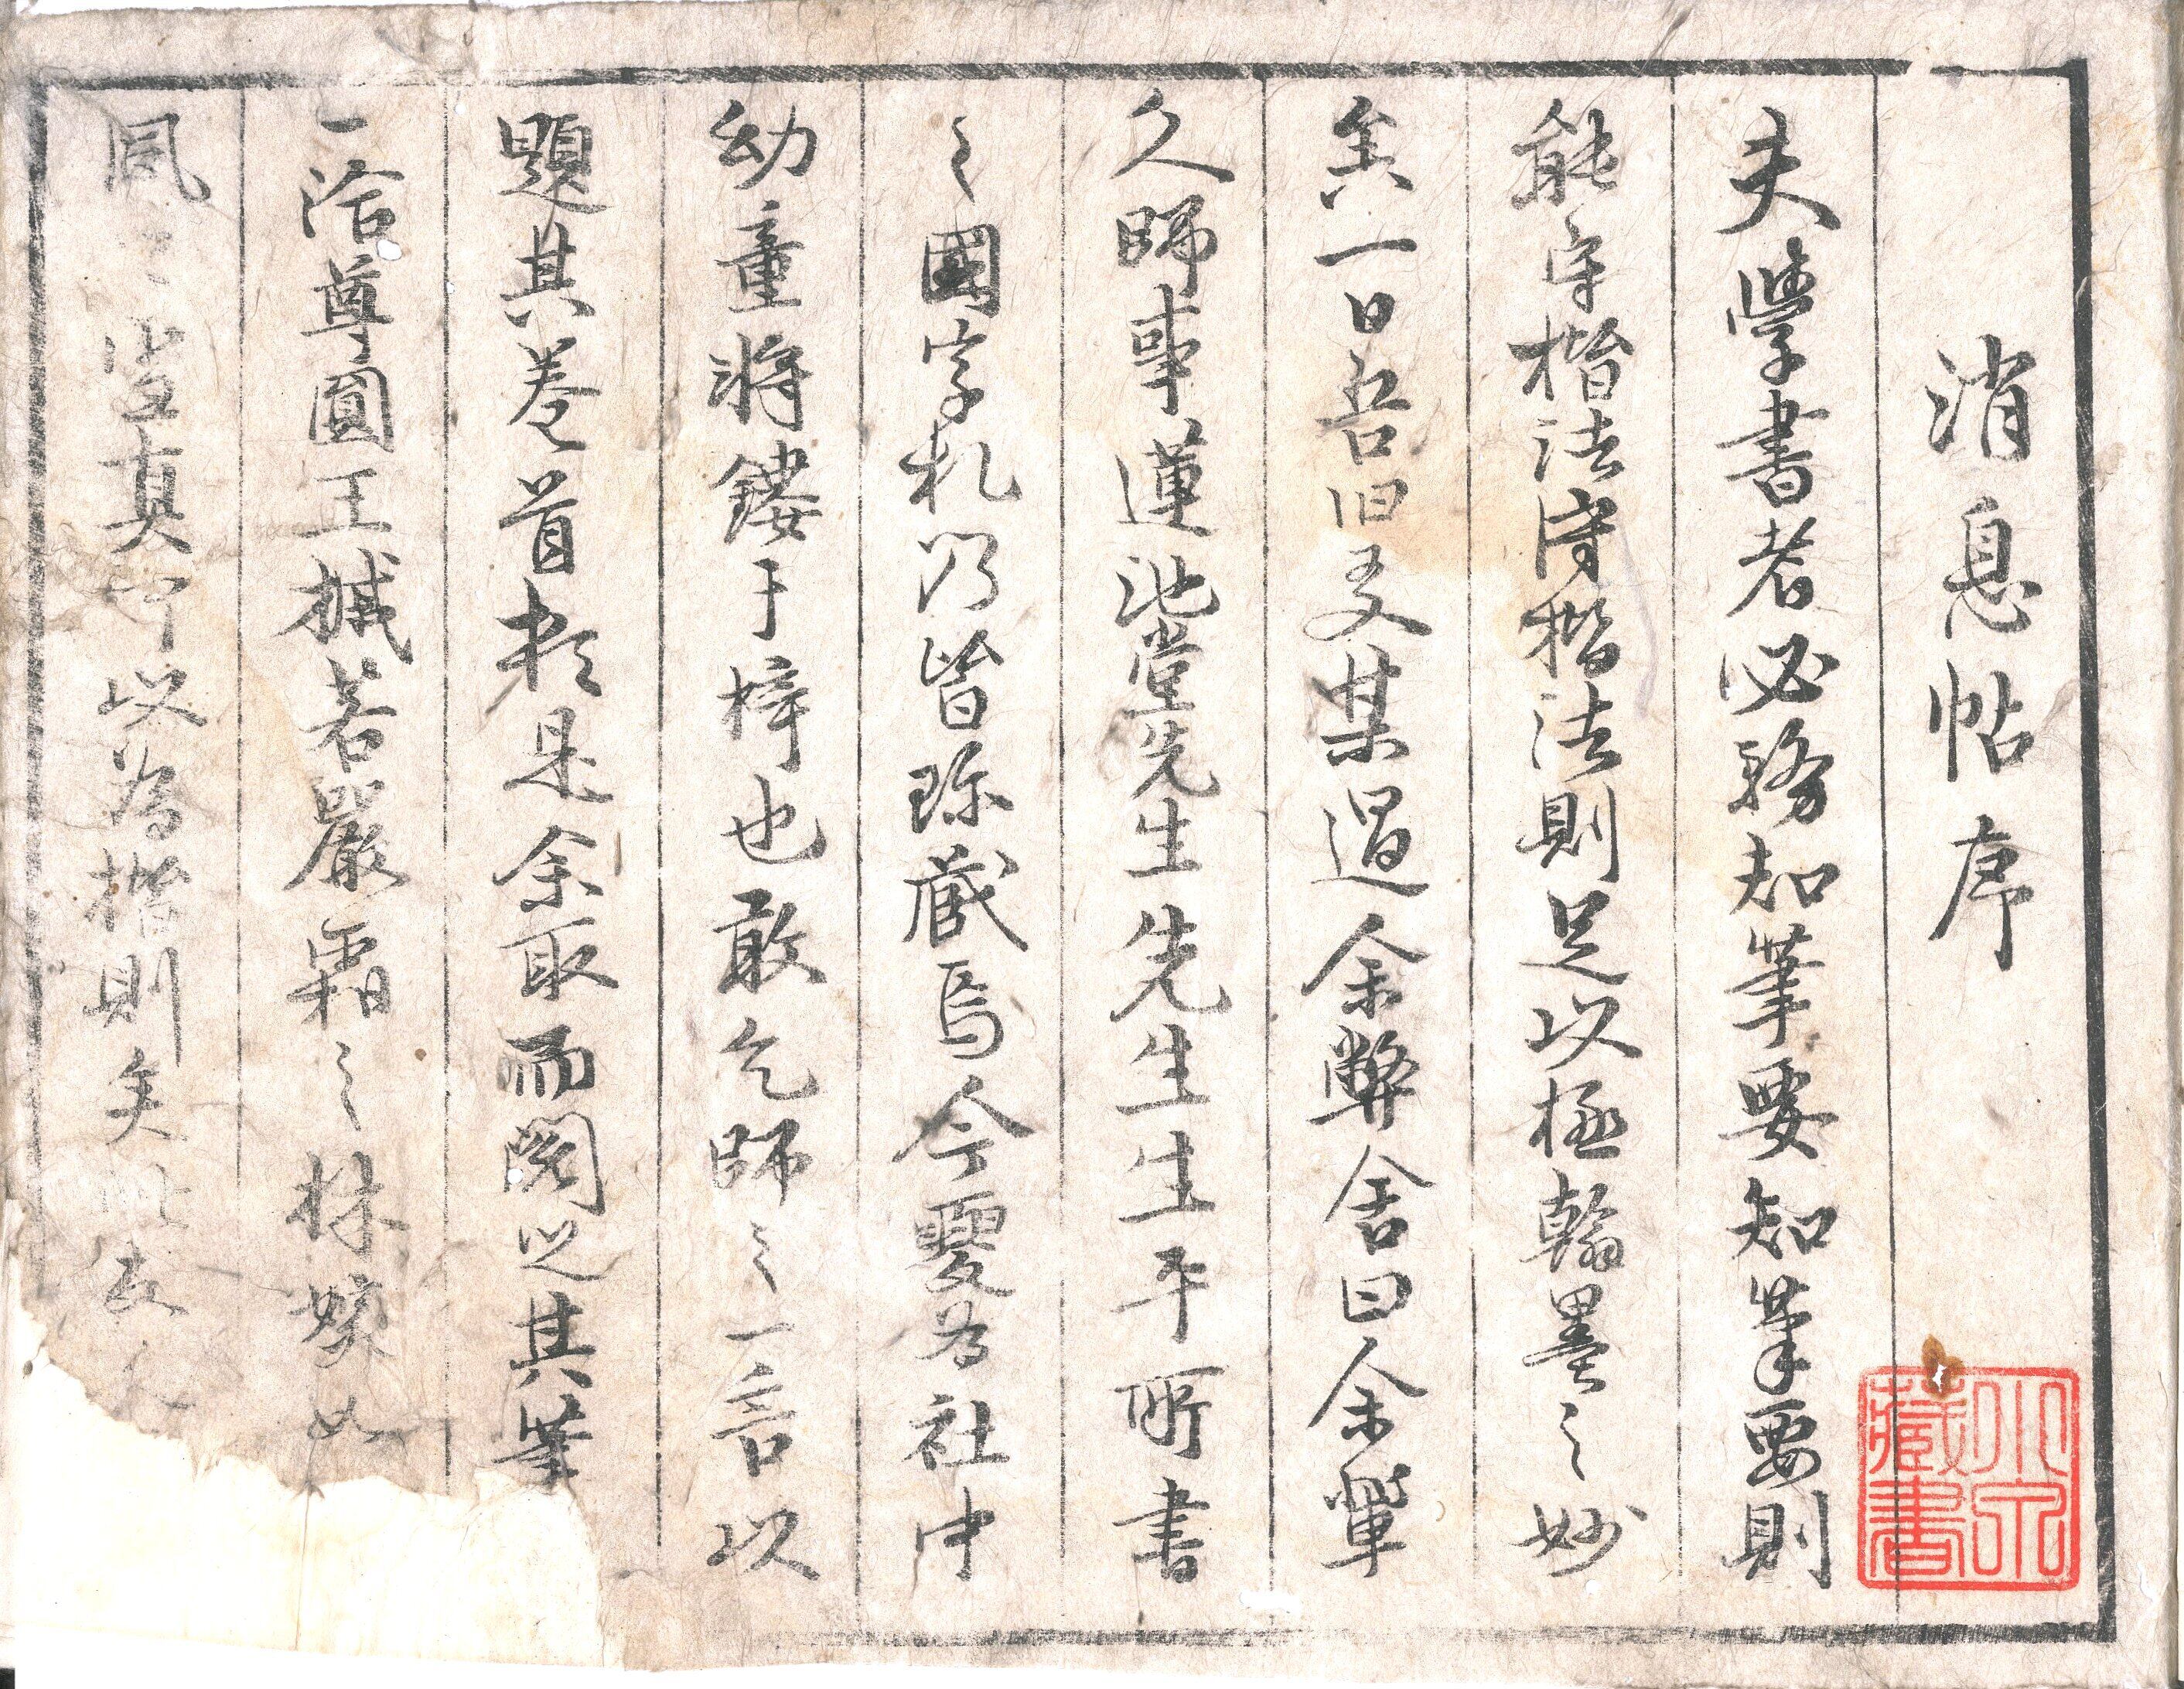 消息帖序
夫學書者必務知筆要知筆要則
能守楷法守楷法則足以極翰墨之妙
矣一日吾旧友某過余弊舎曰余輩
久師事蓮池堂先生先生生平所書
之國字札乃皆珎蔵焉今要為社中
幼童将鏤于梓也敢乞師之一言以
題其巻首於是余取而閲之其筆
一法尊圓王撼若嚴霜之林嫋如
風之 真可以為楷則矣
小八藏書